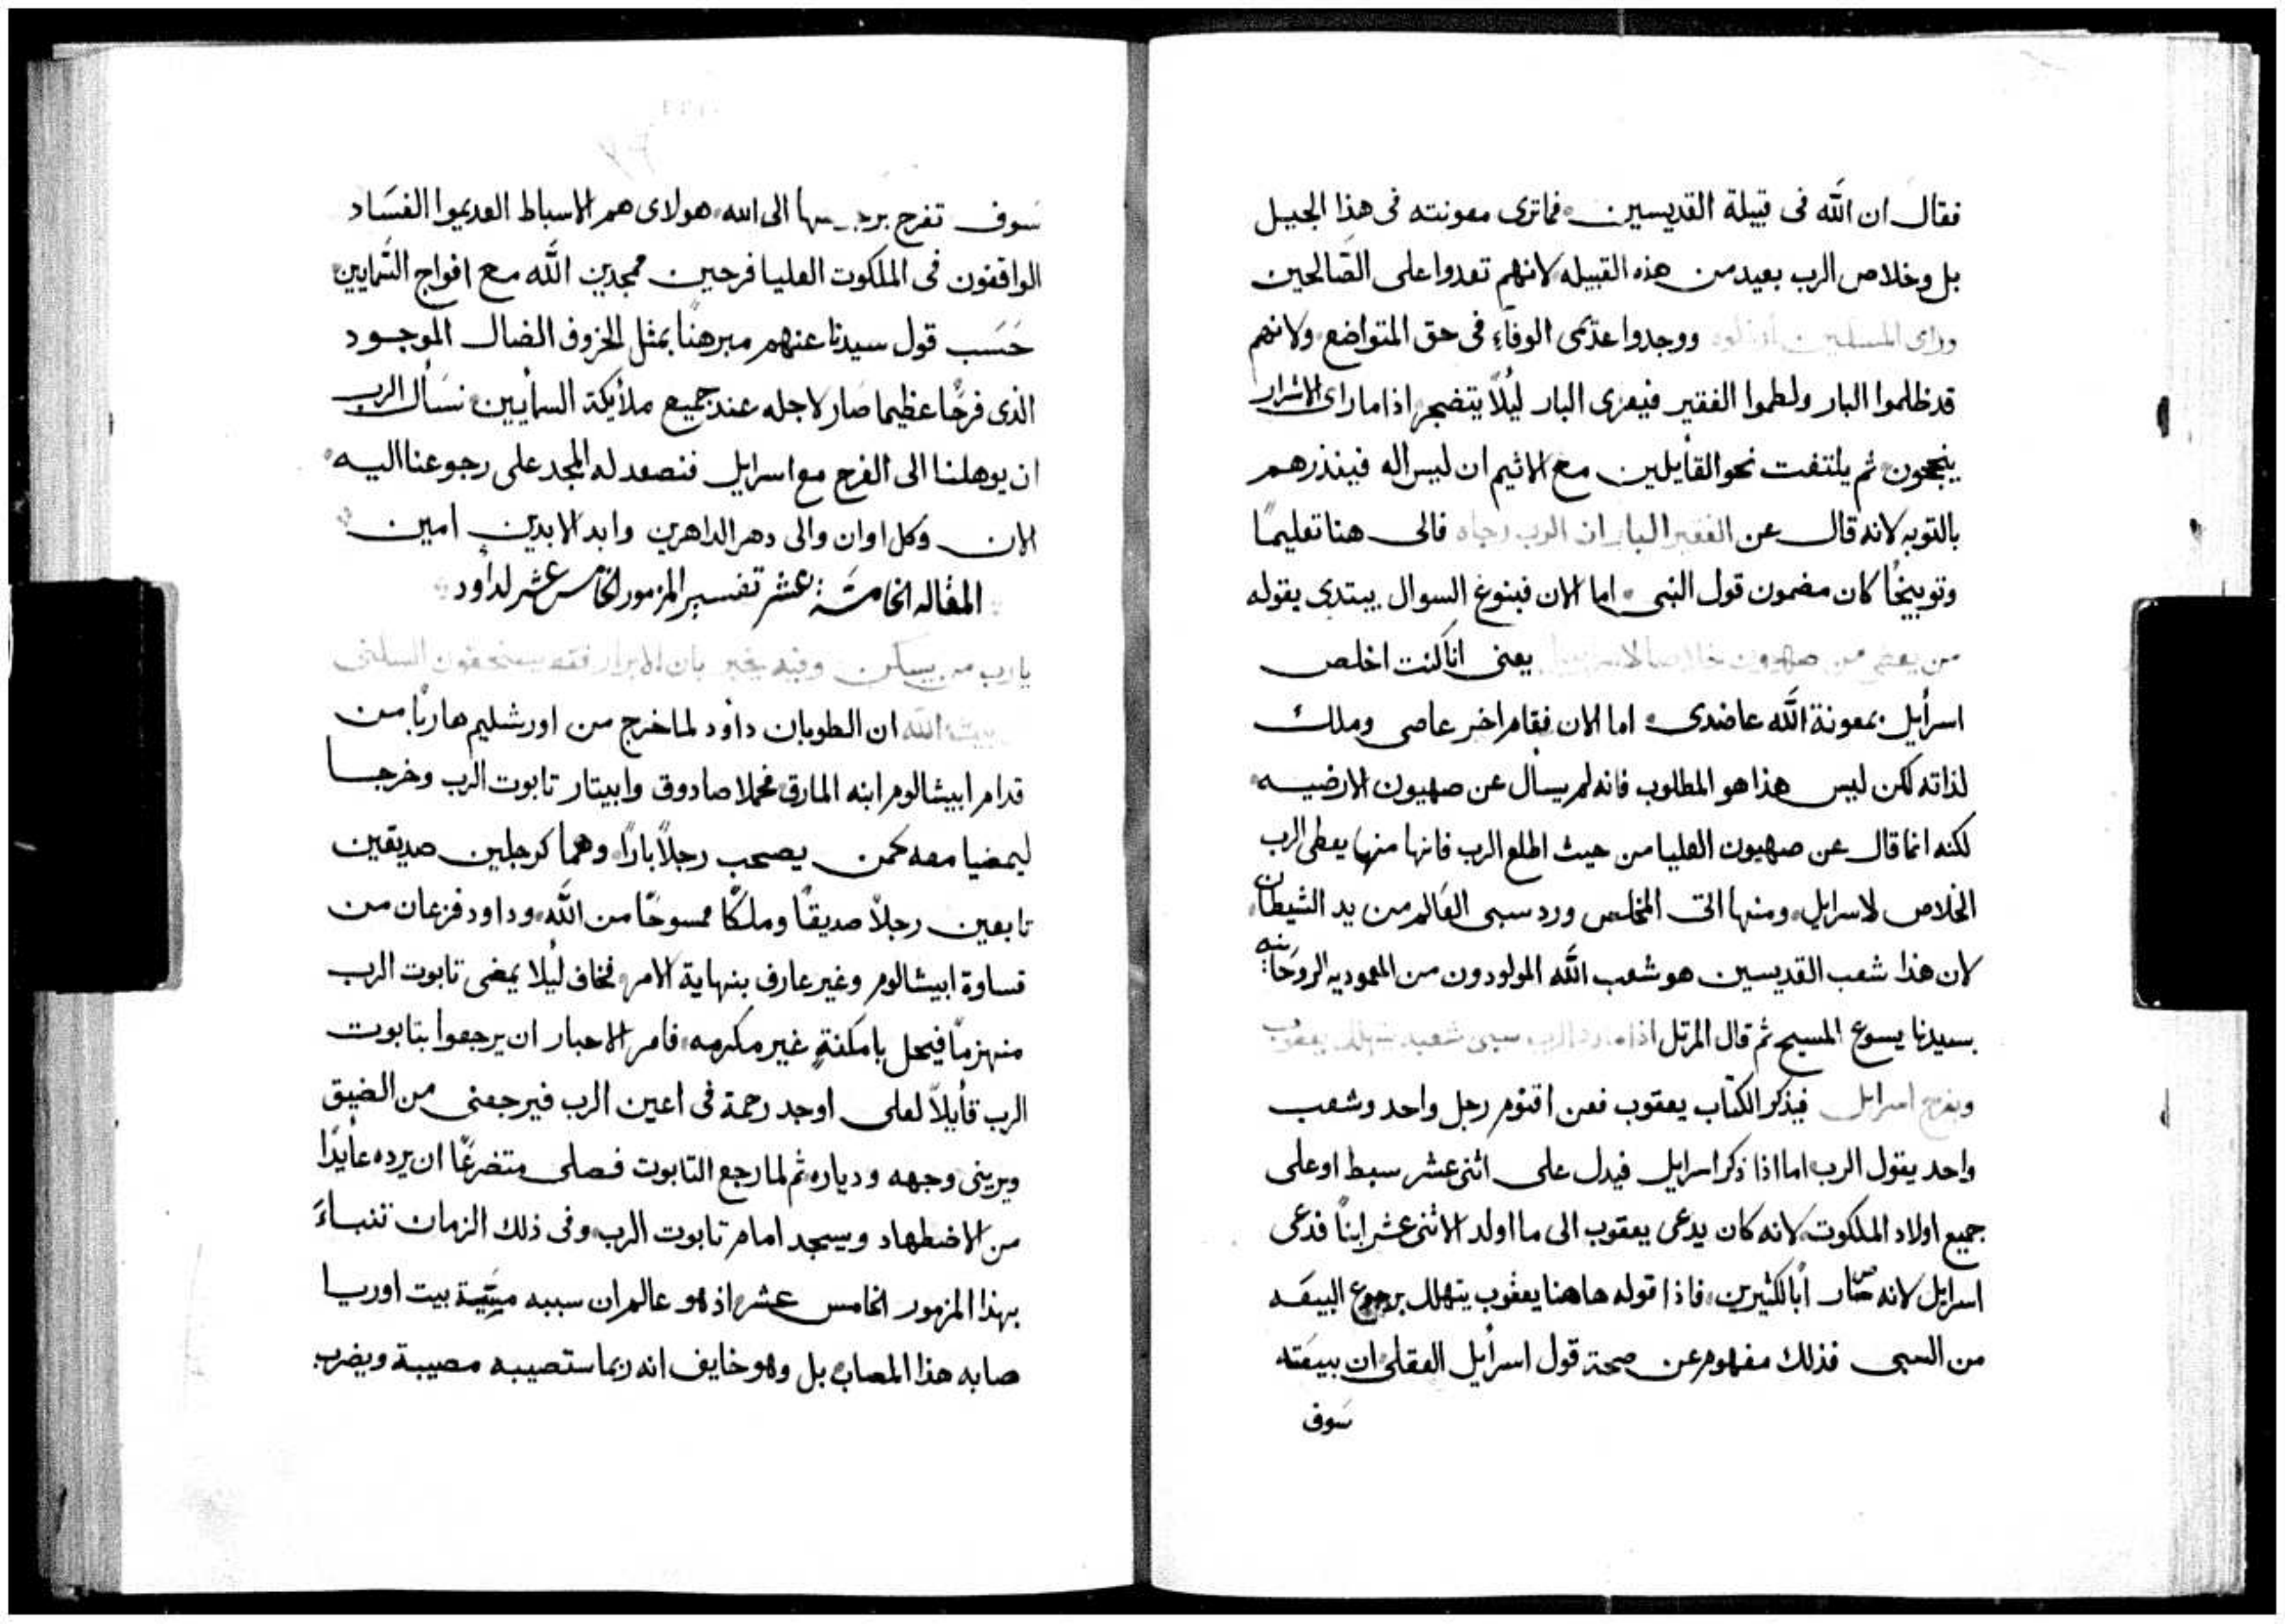 فقال ان الله فى قبيلة القديسين فماترى معونته فى هذا الجيل
بل وخلاص الرب بعيد من هذه القبيله لانهم تعدوا على الصّالحين
وراى المسلبين ووجدوا عدّمى الوفآء فى حق المتواضع ولانهم
قد ظلموا البار ولطموا الفقير فيعزى البار ليُلاً يتضجر اذا ما راى الاشرار
ينجحون ثم يلتفت نحو القأيلين مع الاثيم ان ليس اله فينذرهم
بالتوبه لانه قال عن الفقير البار ان الرب رجاه فالى هنا تعليمًا
وتوبيخًا كان مضمون قول النبى اما الان فبنوع السوال يبتدى بقوله
من يعطى من صهيون خلاصا لاسراييل يعنى انا كنت اخلص
اسرأيل بمعونة الله عاضدى اما الان فقام اخر عاصى وملك
لذاته لكن ليس هذا هو المطلوب فانه لم يسأل عن صهيون الارضيه
لكنه انما قال عن صهيون العليا من حيث اطلع الرب فانها منها يعطى الرب
الخلاص لاسرايل ومنها اتى المخلص ورد سبى العَالم من يد الشيطان
لان هذا شعب القديسين هو شعب الله المولودون من المعموديه الروحَانيه
بسيدنا يسوع المسيح ثم قال المرتل اذا ما رد الرب سبى شعبه يتهلل يعقوب
ويفرح اسرايل فيذكر الكتاب يعقوب فعن اقنوم رجل واحد وشعب
واحد يقول الرب اما اذا ذكر اسرايل فيدل على اثنى عشر سبط او على
جميع اولاد الملكوت لانه كان يدعى يعقوب الى ما اولد الاثنى عشر ابناً فدعى
اسرايل لانه صَار أبًا لكثيرين فاذا قوله هاهنا يعقوب يتهلل برجوع البيعَه
من السبى فذلك مفهوم عن صحة قول اسرأيل العقلى ان ببيعَته
سَوف
سَوف تفرح الى الله هولاى هم الاسباط العديموا الفسَاد
الواقفون فى الملكوت العليا فرحين ممجدين الله مع افواج السّمايين
حَسَب قول سيدنا عنهم مبرهنًا بمثل الخروف الضال الموجود
الذى فرحًا عظيما صَار لاجله عند جميع ملأيكة السمأيين نسَأل الرب
ان يوهلنا الى الفرح مع اسرايل فنصعد له المجد على رجوعنا اليه
الان وكل اوان والى دهر الداهرين وابد الابدين امين
المقاله الخامسَة عشر تفسير المزمور الخامس عشر لداود
يارب من يسكن وفيه يخبر بان الابرار فقط يستحقون السكنى
ببيت الله ان الطوبان دأود لما خرج من اورشليم هاربًا من
قدام ابيشالوم ابنه المارق فحملا صادوق وابيتار تابوت الرب وخرجا
ليمضيا معه كمن يصحب رجلاً بارًا وهما كرجلين صديقين
تابعين رجلاً صديقًا وملكًا ممسوحًا من الله وداود فزعان من
قساوة ابيشالوم وغير عارف بنهاية الامر فخاف ليُلا يمضى تابوت الرب
منهزمًا فيحل بامكنةٍ غير مكرمه فامر الاحبار ان يرجعوا بتابوت
الرب قأيلاً لعلى اوجد رحمة فى اعين الرب فيرجعنى من الضيق
ويرينى وجهه ودياره ثم لما رجع التابوت فصلى متضرعًا ان يرده عأيدًا
من الاضطهاد ويسجد امام تابوت الرب وفى ذلك الزمان تنباءَ
بهذا المزمور الخامس عشر اذ هو عالم ان سببه بيت اوريا
صابه هذا المصاب بل وهو خايف انه ربما ستصيبه مصيبة ويضرب